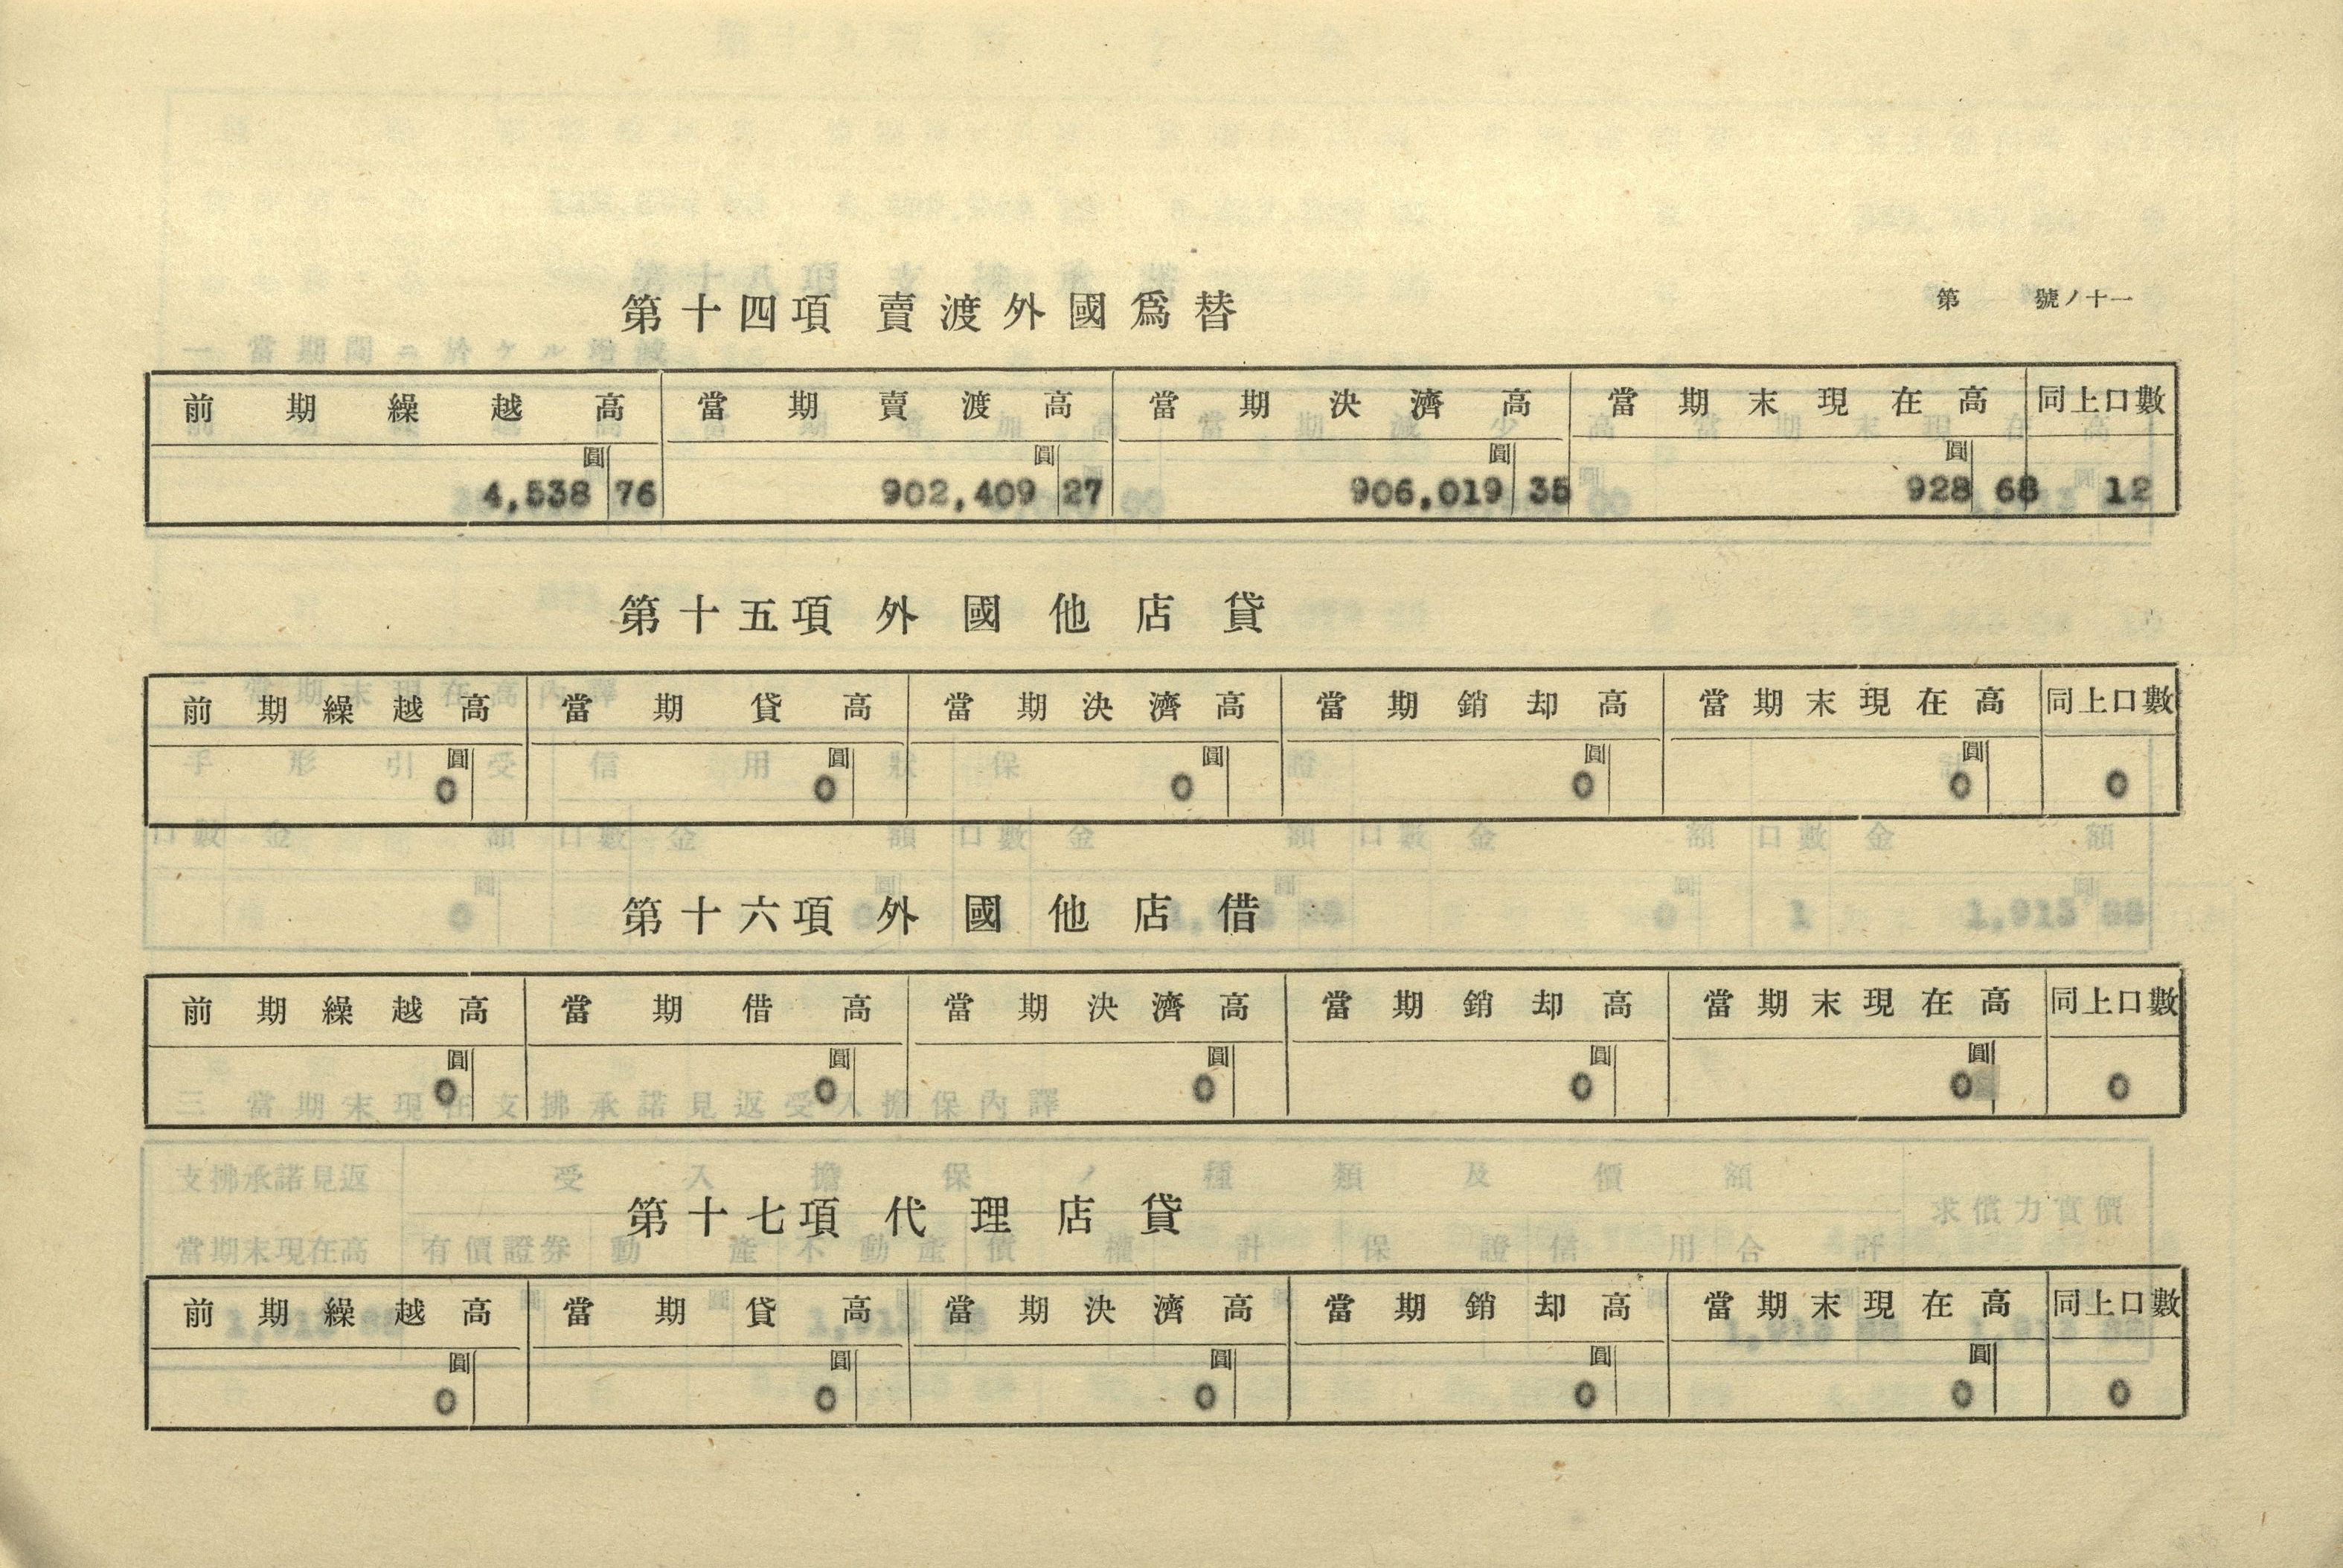 第　號ノ十一
第十四項 賣渡外國爲替
前期繰越高 當期賣渡高 當期決濟高 當期末現在高 同上口數
圓 圓 圓 圓
4,538 76 902,409 27 906,019 35 928 68 12
第十五項 外國他店貸
前期繰越高 當期貸高 當期決濟高 當期銷却高 當期末現在高 同上口數
圓 圓 圓 圓 圓
0 0 0 0 0 0
第十六項 外國他店借
前期繰越高 當期借高 當期決濟高 當期銷却高 當期末現在高 同上口數
圓 圓 圓 圓 圓
0 0 0 0 0 0
第十七項 代理店貸
前期繰越高 當期貸高 當期決濟高 當期銷却高 當期末現在高 同上口數
圓 圓 圓 圓 圓
0 0 0 0 0 0